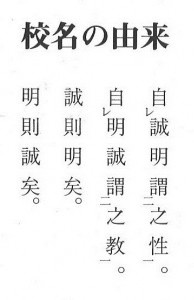 校名の由来
自レ誠明謂二之性一。
自レ明誠謂二之教一。
誠則明矣。
明則誠矣。